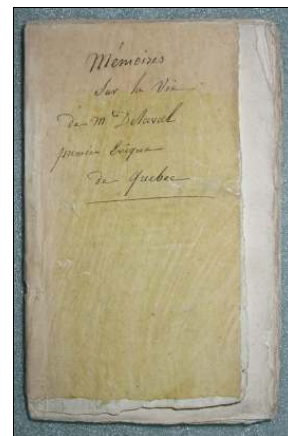 Mémoires
Sur la Vie
de Mr DeLaval
premier Evêque
de Quebec